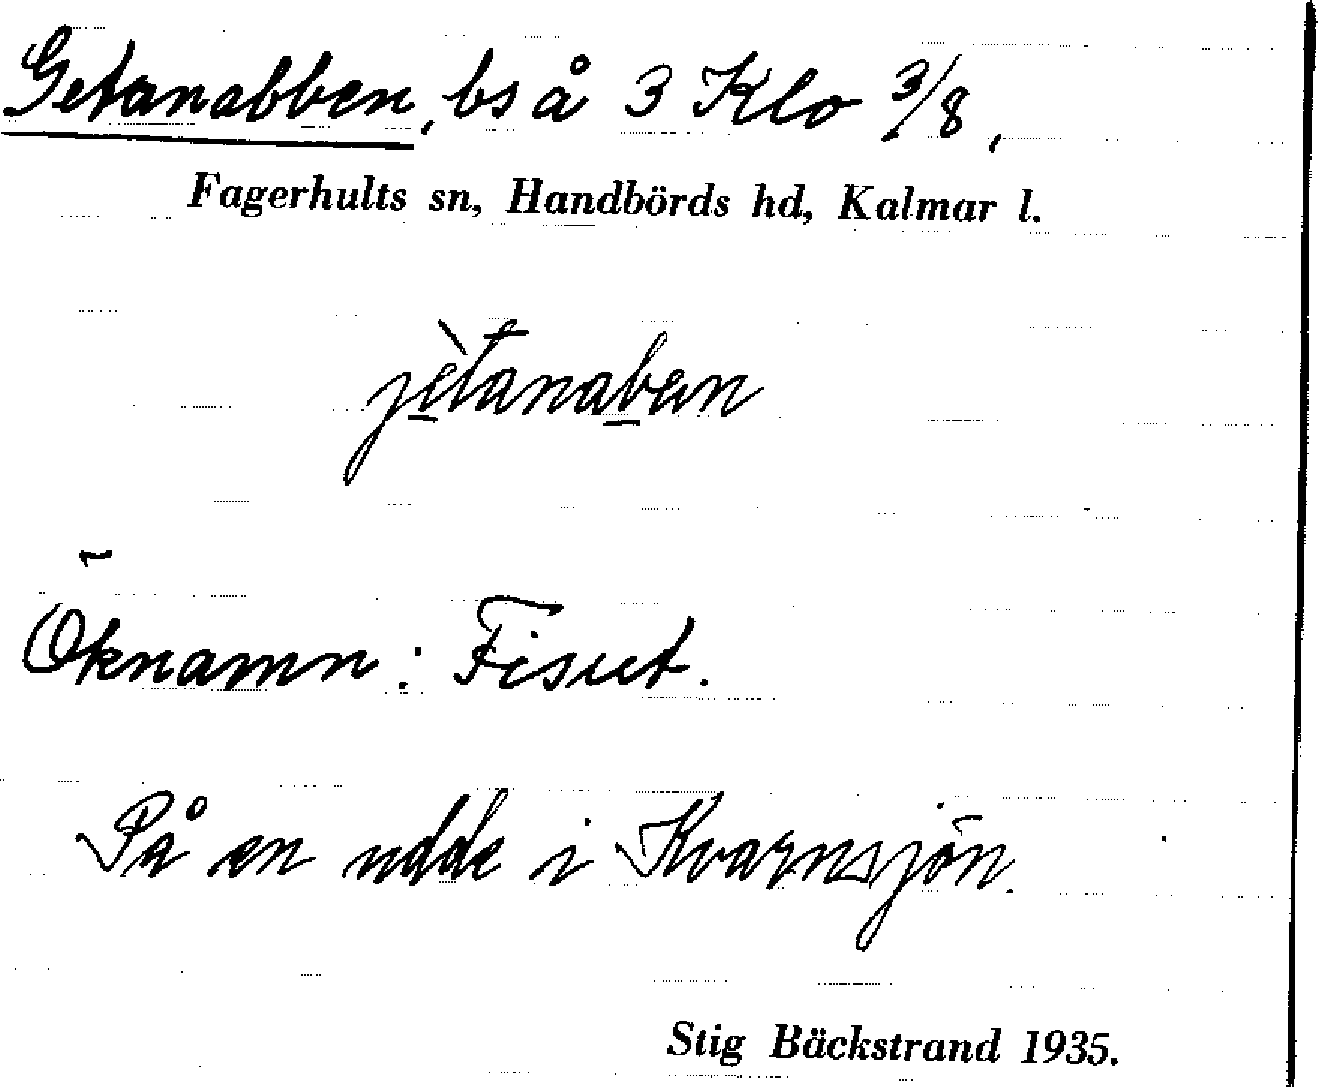 Getanabben, bs å 3 Klo 3/8,
Fagerhults sn, Handbörds hd, Kalmar l.
jètanaben
Öknamn: Fisut.
På en udde i Kvarnsjön.
Stig Bäckstrand 1935.